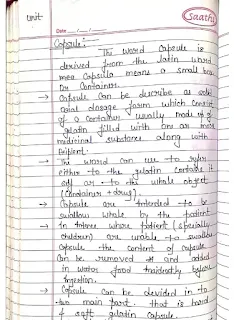 unit
Saathi
Date ..../..../....
Capsule:
The word capsule is
derived from the latin word
capsula means a small box
or container.
→ Capsule can be describe as solid
oral dosage form which consist
of a container usually made up of
gelatin filled with one or more
medicinal substance along with
Exipient.
→ The word can use to refer
either to the gelatin container it
self or to the whole object
(Container + drug).
→ Capsule are intended to be
swallow whole by the patient.
→ In where patient (specially
children) are unable to swallow
capsule the content of capsule
Can be removed and added
in water food before
ingestion.
→ Capsule can be devided in to
two main part. that is hard
& soft gelatin capsule.